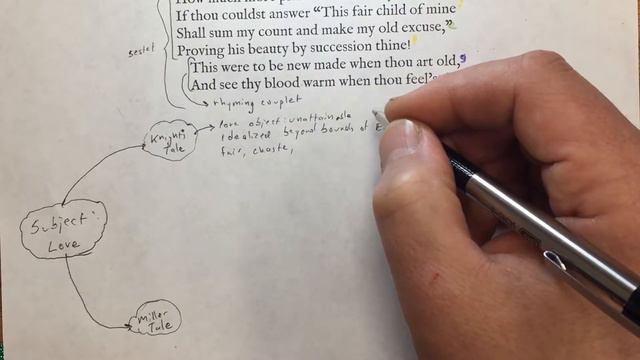 If thou couldst answer “This fair child of mine
Shall sum my count and make my old excuse,”
Proving his beauty by succession thine!
This were to be new made when thou art old,
And see thy blood warm when thou feel’s
sestet
rhyming couplet
Knight's
Tale
love object: unattainable
idealized beyond bounds of E
fair, chaste,
Subject:
Love
Miller
Tale